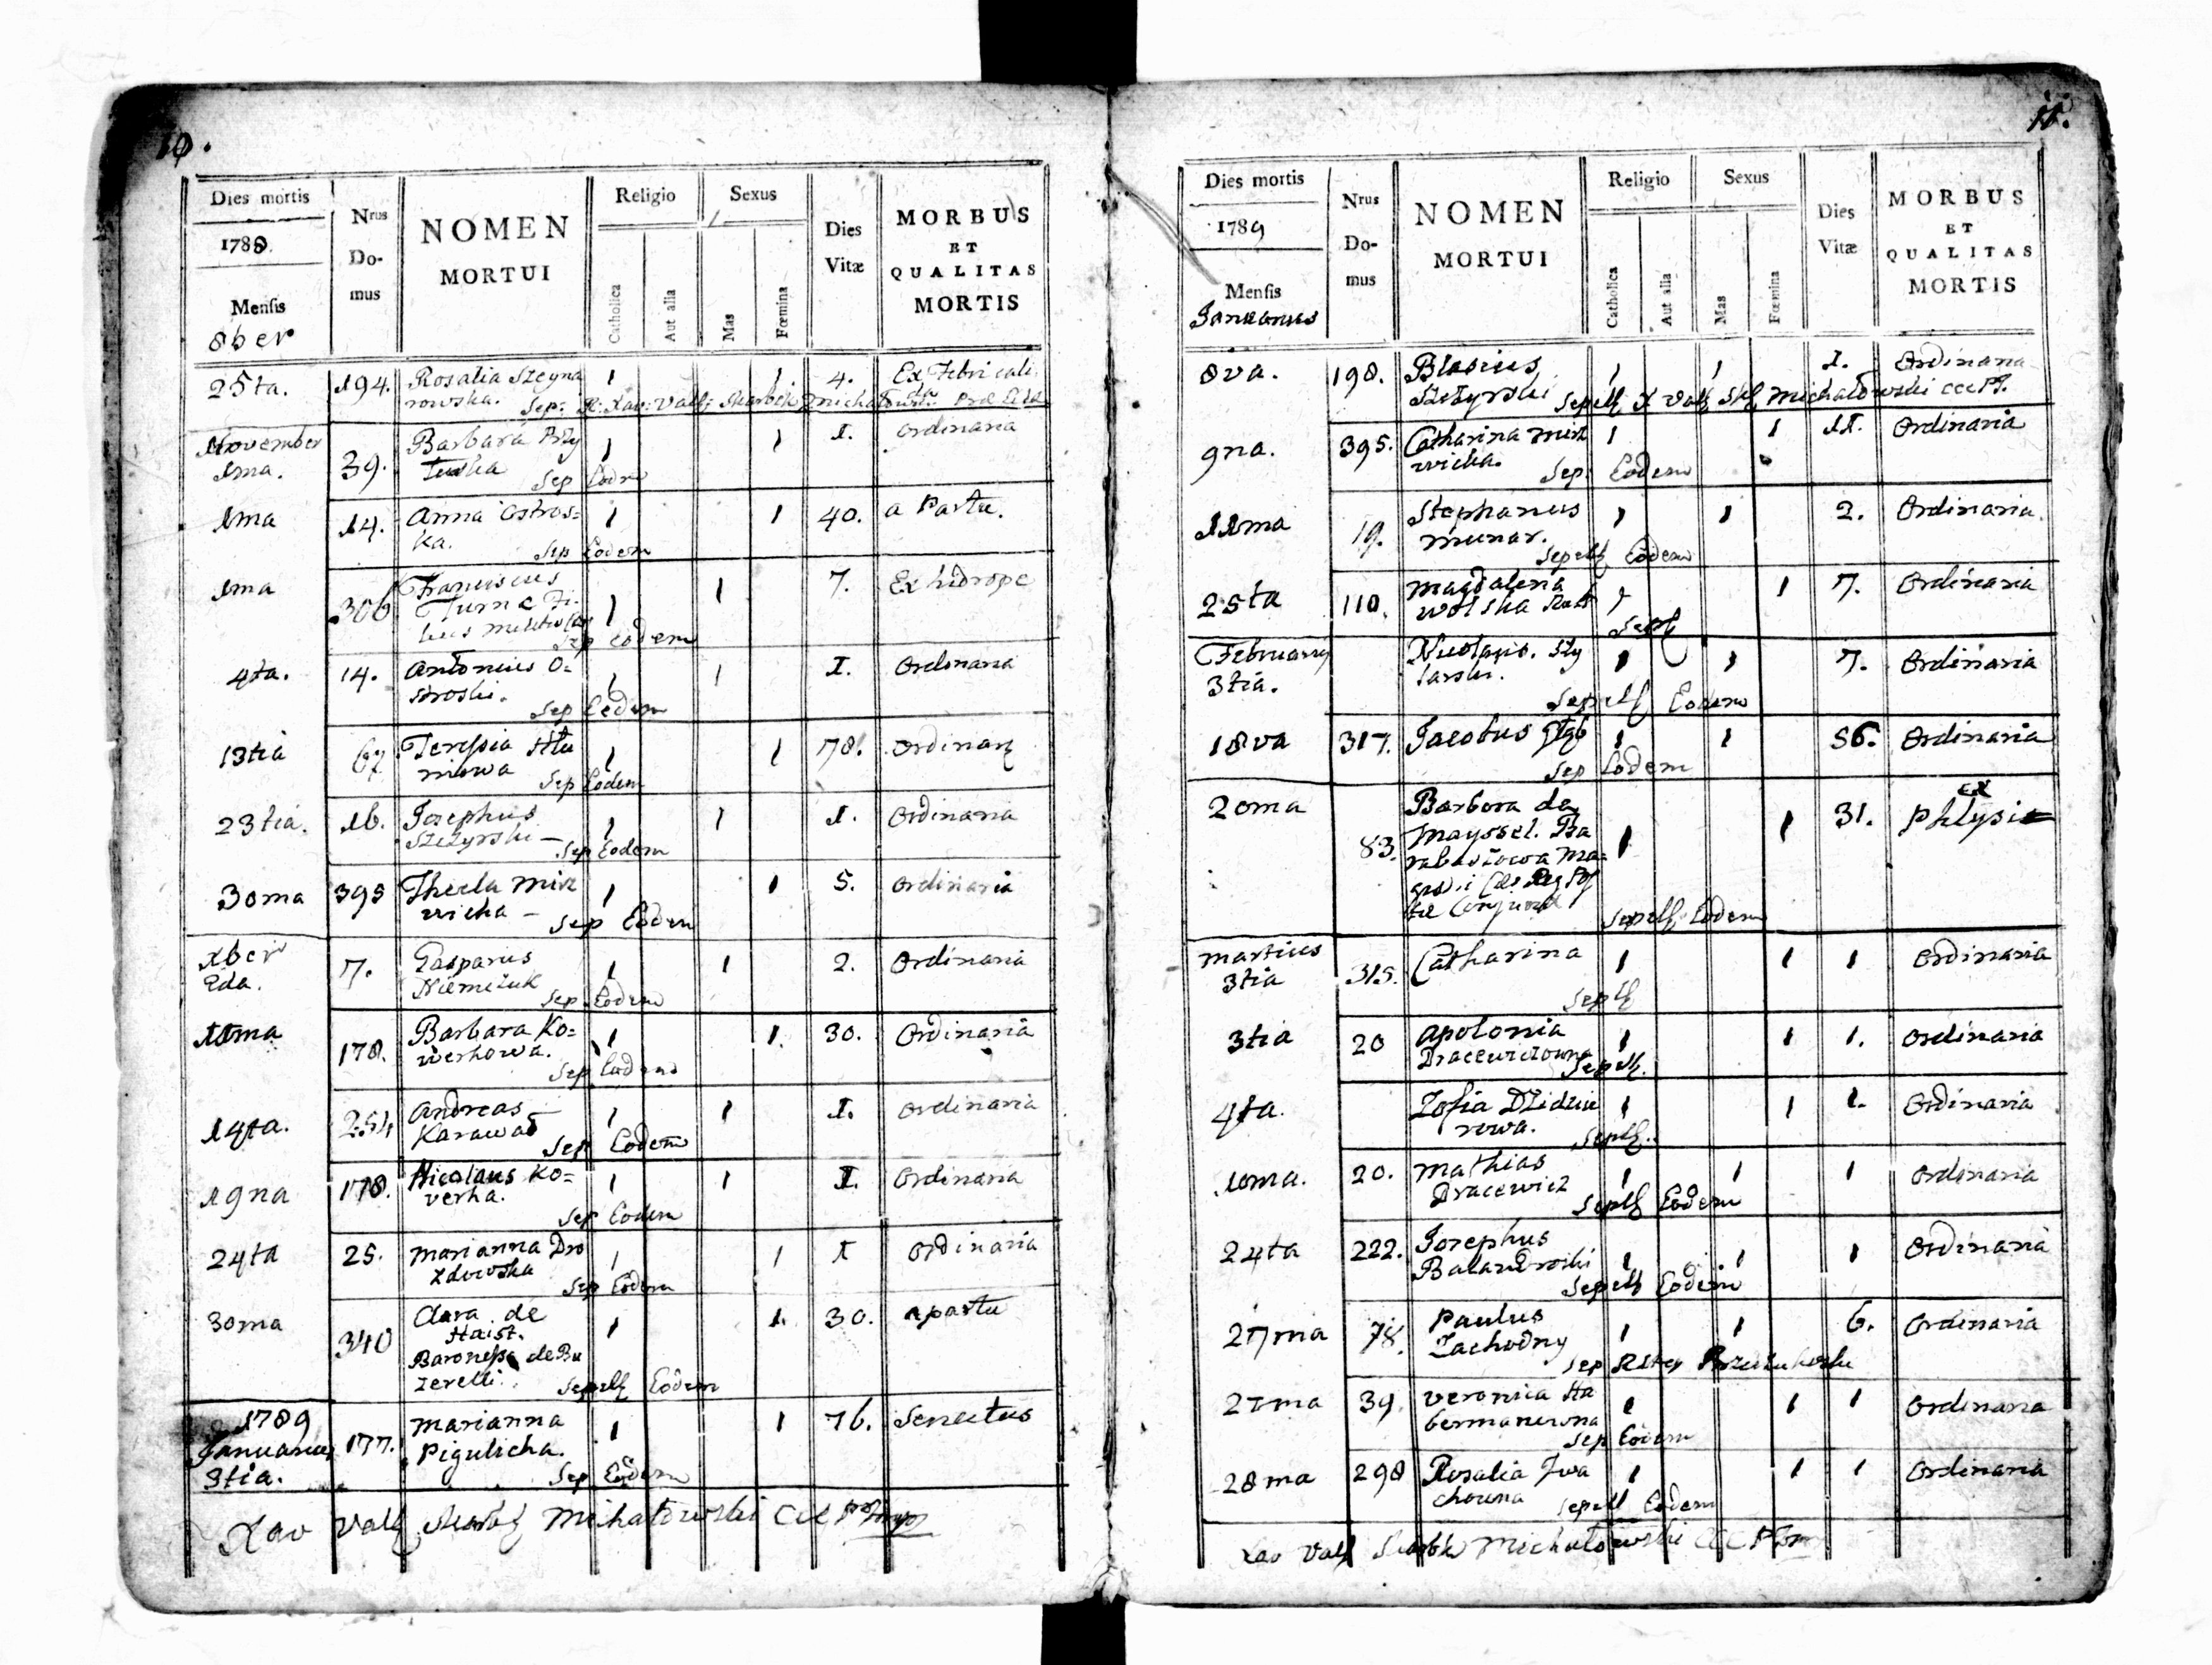 10.
Dies mortis
1788.
Mensis
8ber
Nrus
Do-
mus
NOMEN
MORTUI
Religio
Catholica
Aut alia
Sexus
Mas
Fœmina
Dies
Vitæ
MORBUS
ET
QUALITAS
MORTIS
25ta. 194. Rosalia Szeyna 1 1 4.
rowska. Sep:
November 39. Barbara 1 1 I. ordinaria
1ma. Sep Eodem
1ma 14. Anna Ostros= 1 1 40. a Partu.
ka. Sep Eodem
1ma 306 Franciscus 1 1 7. Ex hidrope
Sep eodem
4ta. 14. Antonius O= 1 1 I. Ordinaria
stroski. Sep Eodem
13tia 67 Teressia 1 1 78. Ordinar
Sep Eodem
23tia. 16. Josephus 1 1 1. Ordinaria
Szczyrski — Sep Eodem
30ma 395 Thecla Mirz 1 1 5. Ordinaria
wicka — Sep Eodem
Xber 7. Gasparus 1 1 2. Ordinaria
2da. Niemczuk Sep Eodem
10ma 178. Barbara Ko= 1 1. 30. Ordinaria
werkowa. Sep Eodem
14ta. 254 Andreas — 1 1 I. Ordinaria
Karawas Sep Eodem
19na 178. Nicolaus Ko= 1 1 I. Ordinaria
verka. Sep Eodem
24ta 25. Marianna Dro 1 1 I Ordinaria
zdowska Sep Eodem
30ma 340 Clara de 1 1. 30. a partu
Haist.
Baronessa de Bu
zerelli. Sepelt Eodem
1789
Januarius 177. Marianna 1 1 76. Senectus
3tia. Pigulicha. Sep Eodem
Xav Val Skarb Michałowski
11.
Dies mortis
1789
Mensis
Januarius
Nrus
Do-
mus
NOMEN
MORTUI
Religio
Catholica
Aut alia
Sexus
Mas
Fœmina
Dies
Vitæ
MORBUS
ET
QUALITAS
MORTIS
8va. 198. Blasius 1 1 I. Ordinaria
Szczyrski Sepelt X Val Michałowski
9na. 395. Catharina Mirz 1 1 11. Ordinaria
wicka. Sep. Eodem
11ma 19. Stephanus 1 1 2. Ordinaria.
Sepelt Eodem
25ta 110. Magdalena 1 1 7. Ordinaria
Wolska Sepelt
February 1 1 7. Ordinaria
3tia. Sepelt Eodem
18va 317. Jacobus 1 1 56. Ordinaria
Sep Eodem
20ma 83. Barbara de 1 1 31. ex
Mayssel. Ba Phtysi
rabaszowa Ma=
Sepelt Eodem
Martius 315. Catharina 1 1 1 Ordinaria
3tia Sepelt
3tia 20 Apolonia 1 1 1. Ordinaria
Dracewiczowna Sepelt.
4ta. Zofia 1 1 1. Ordinaria
rowa. Sepelt.
10ma. 20. Mathias 1 1 1 Ordinaria
Dracewicz Sepelt Eodem
24ta 222. Josephus 1 1 1 Ordinaria
Balandroski Sepelt Eodem
27ma 78. Paulus 1 1 6. Ordinaria
Zachodny Sep
27ma 39. Veronica Ha 1 1 1 Ordinaria
bermanuwna Sep Eodem
28ma 298 Rosalia Iwa 1 1 1 Ordinaria
chowna Sepelt Eodem
Xav Val Skarbk Michałowski